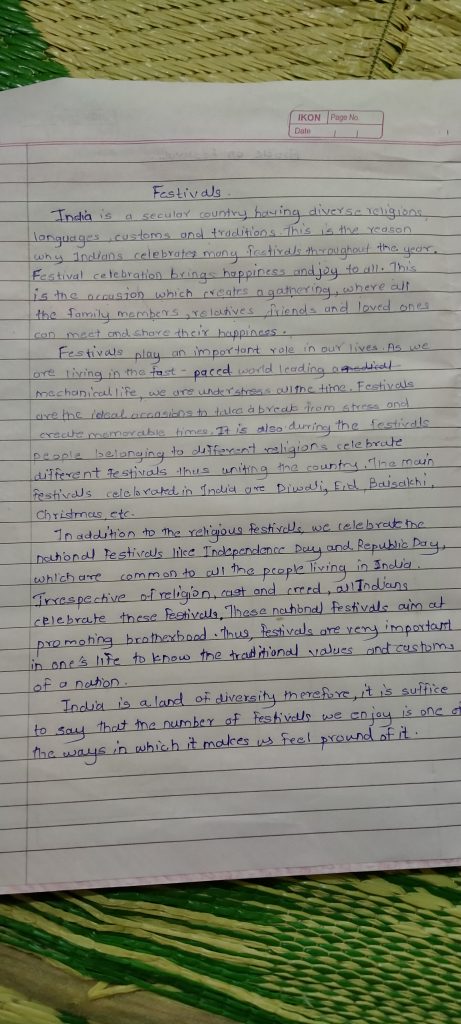 IKON Page No.
Date
Festivals.
India is a secular country having diverse religions,
languages, customs and traditions. This is the reason
why Indians celebrates many festivals throughout the year.
Festival celebration brings happiness and joy to all. This
is the occasion which creates a gathering, where all
the family members, relatives, friends and loved ones
can meet and share their happiness.
Festivals play an important role in our lives. As we
are living in the fast-paced world leading a medical
mechanical life, we are under stress all the time. Festivals
are the ideal occasions to take a break from stress and
create memorable times. It is also during the festivals
people belonging to different religions celebrate
different festivals thus uniting the country. The main
festivals celebrated in India are Diwali, Eid, Baisakhi,
Christmas, etc.
In addition to the religious festivals, we celebrate the
national festivals like Independence Day and Republic Day,
which are common to all the people living in India.
Irrespective of religion, cast and creed, all Indians
celebrate these festivals. These national festivals aim at
promoting brotherhood. Thus, festivals are very important
in one's life to know the traditional values and customs
of a nation.
India is a land of diversity therefore, it is suffice
to say that the number of festivals we enjoy is one of
the ways in which it makes us feel pround of it.